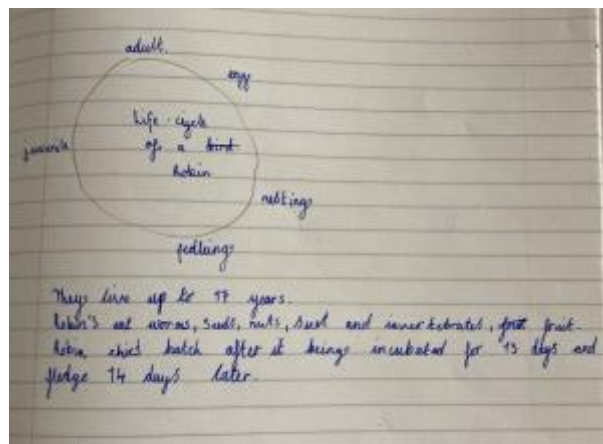 adult.
egg
Life cycle
of a bird
Robin
juvenile
nestings
fledlings
They live up to 17 years.
Robin's eat worms, seeds, nuts, suet and invertebrates, fruit.
Robin chics hatch after it beings incubated for 13 days and
fledge 14 days later.